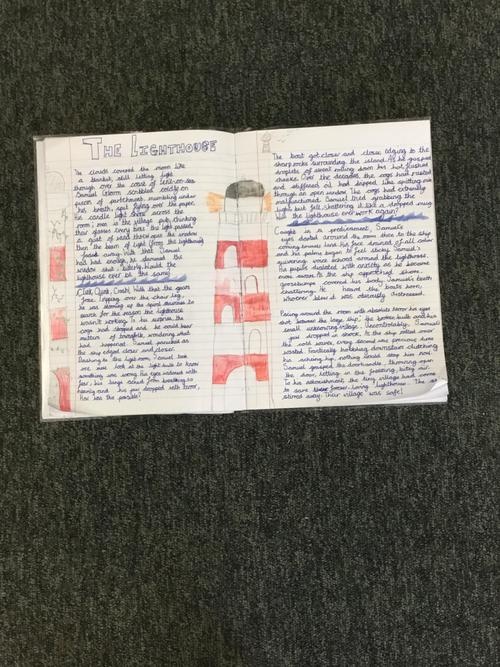 THE LIGHTHOUSE
The clouds covered the moon like
a blanket, still letting light
through over the coast of
Samuel Gibson scribbled sadly on
pieces of parchment, mumbling under
his breath, spit flying over the paper.
his candle light shone across the
room; men in the village pub, clinking
their glasses every time the light passed
a gust of wind threw open the window
then the beam of light (from the lighthouse)
faded away. With that Samuel
had had enough, he slammed the
window shut bitterly. Would the
lighthouse ever be the same?
Clink, Clunk, Crash! With that the gears
froze. Lipping over the chair leg,
he was storming up the spiral staircase to
search for the reason the lighthouse
wasn't working. To his surprise the
cogs had stopped and he could hear
mutters of townsfolk, wondering what
had happened. Samuel panicked as
the ship edged closer and closer.
Dashing to the light room, Samuel took
one look at the light bulb to know
something was wrong. His eyes widened with
fear, his lungs
and his jaw dropped with terror,
How was this possible?
The boat got closer and closer edging to the
sharp rocks surrounding the island. As he gasped
droplets of sweat rolling down his hot, flushed
cheeks. Over the decades, the cogs had rusted
and stiffened oil had dripped like spitting rain
through an open window. The cogs had extremely
malfunctioned. Samuel tried grabbing the
light but fell shattering it like a dropped mug
Will the lighthouse ever work again?
Caught in a predicament, Samuel's
eyes darted around the room. Due to the ship
coming towards land, his face drained of all color
and his palms began to feel sticky. Samuel's
quivering voice echoed around the lighthouse.
His pupils dilated with anxiety as he became
even worse. As the ship approached shore,
goosebumps covered his body, Samuel's teeth
chattering. He heard the boat's horn,
whoever blew it was obviously distressed.
Pacing around the room with absolute terror his eyes
shot between the large ship, the broken bulb and his
small, unknowing village. Uncontrollably, Samuel's
jaw dropped in shock. As the ship sailed over
the cold waves, every second was precious time
wasted. Frantically hobbling downstairs clutching
his aching hip, nothing could stop him now.
Samuel grasped the doorhandle, throwing open
the door, letting in the freezing, bitey air.
To his astonishment the tiny village had come
to save their forever-loving lighthouse. The
stirred away. Their village was safe!